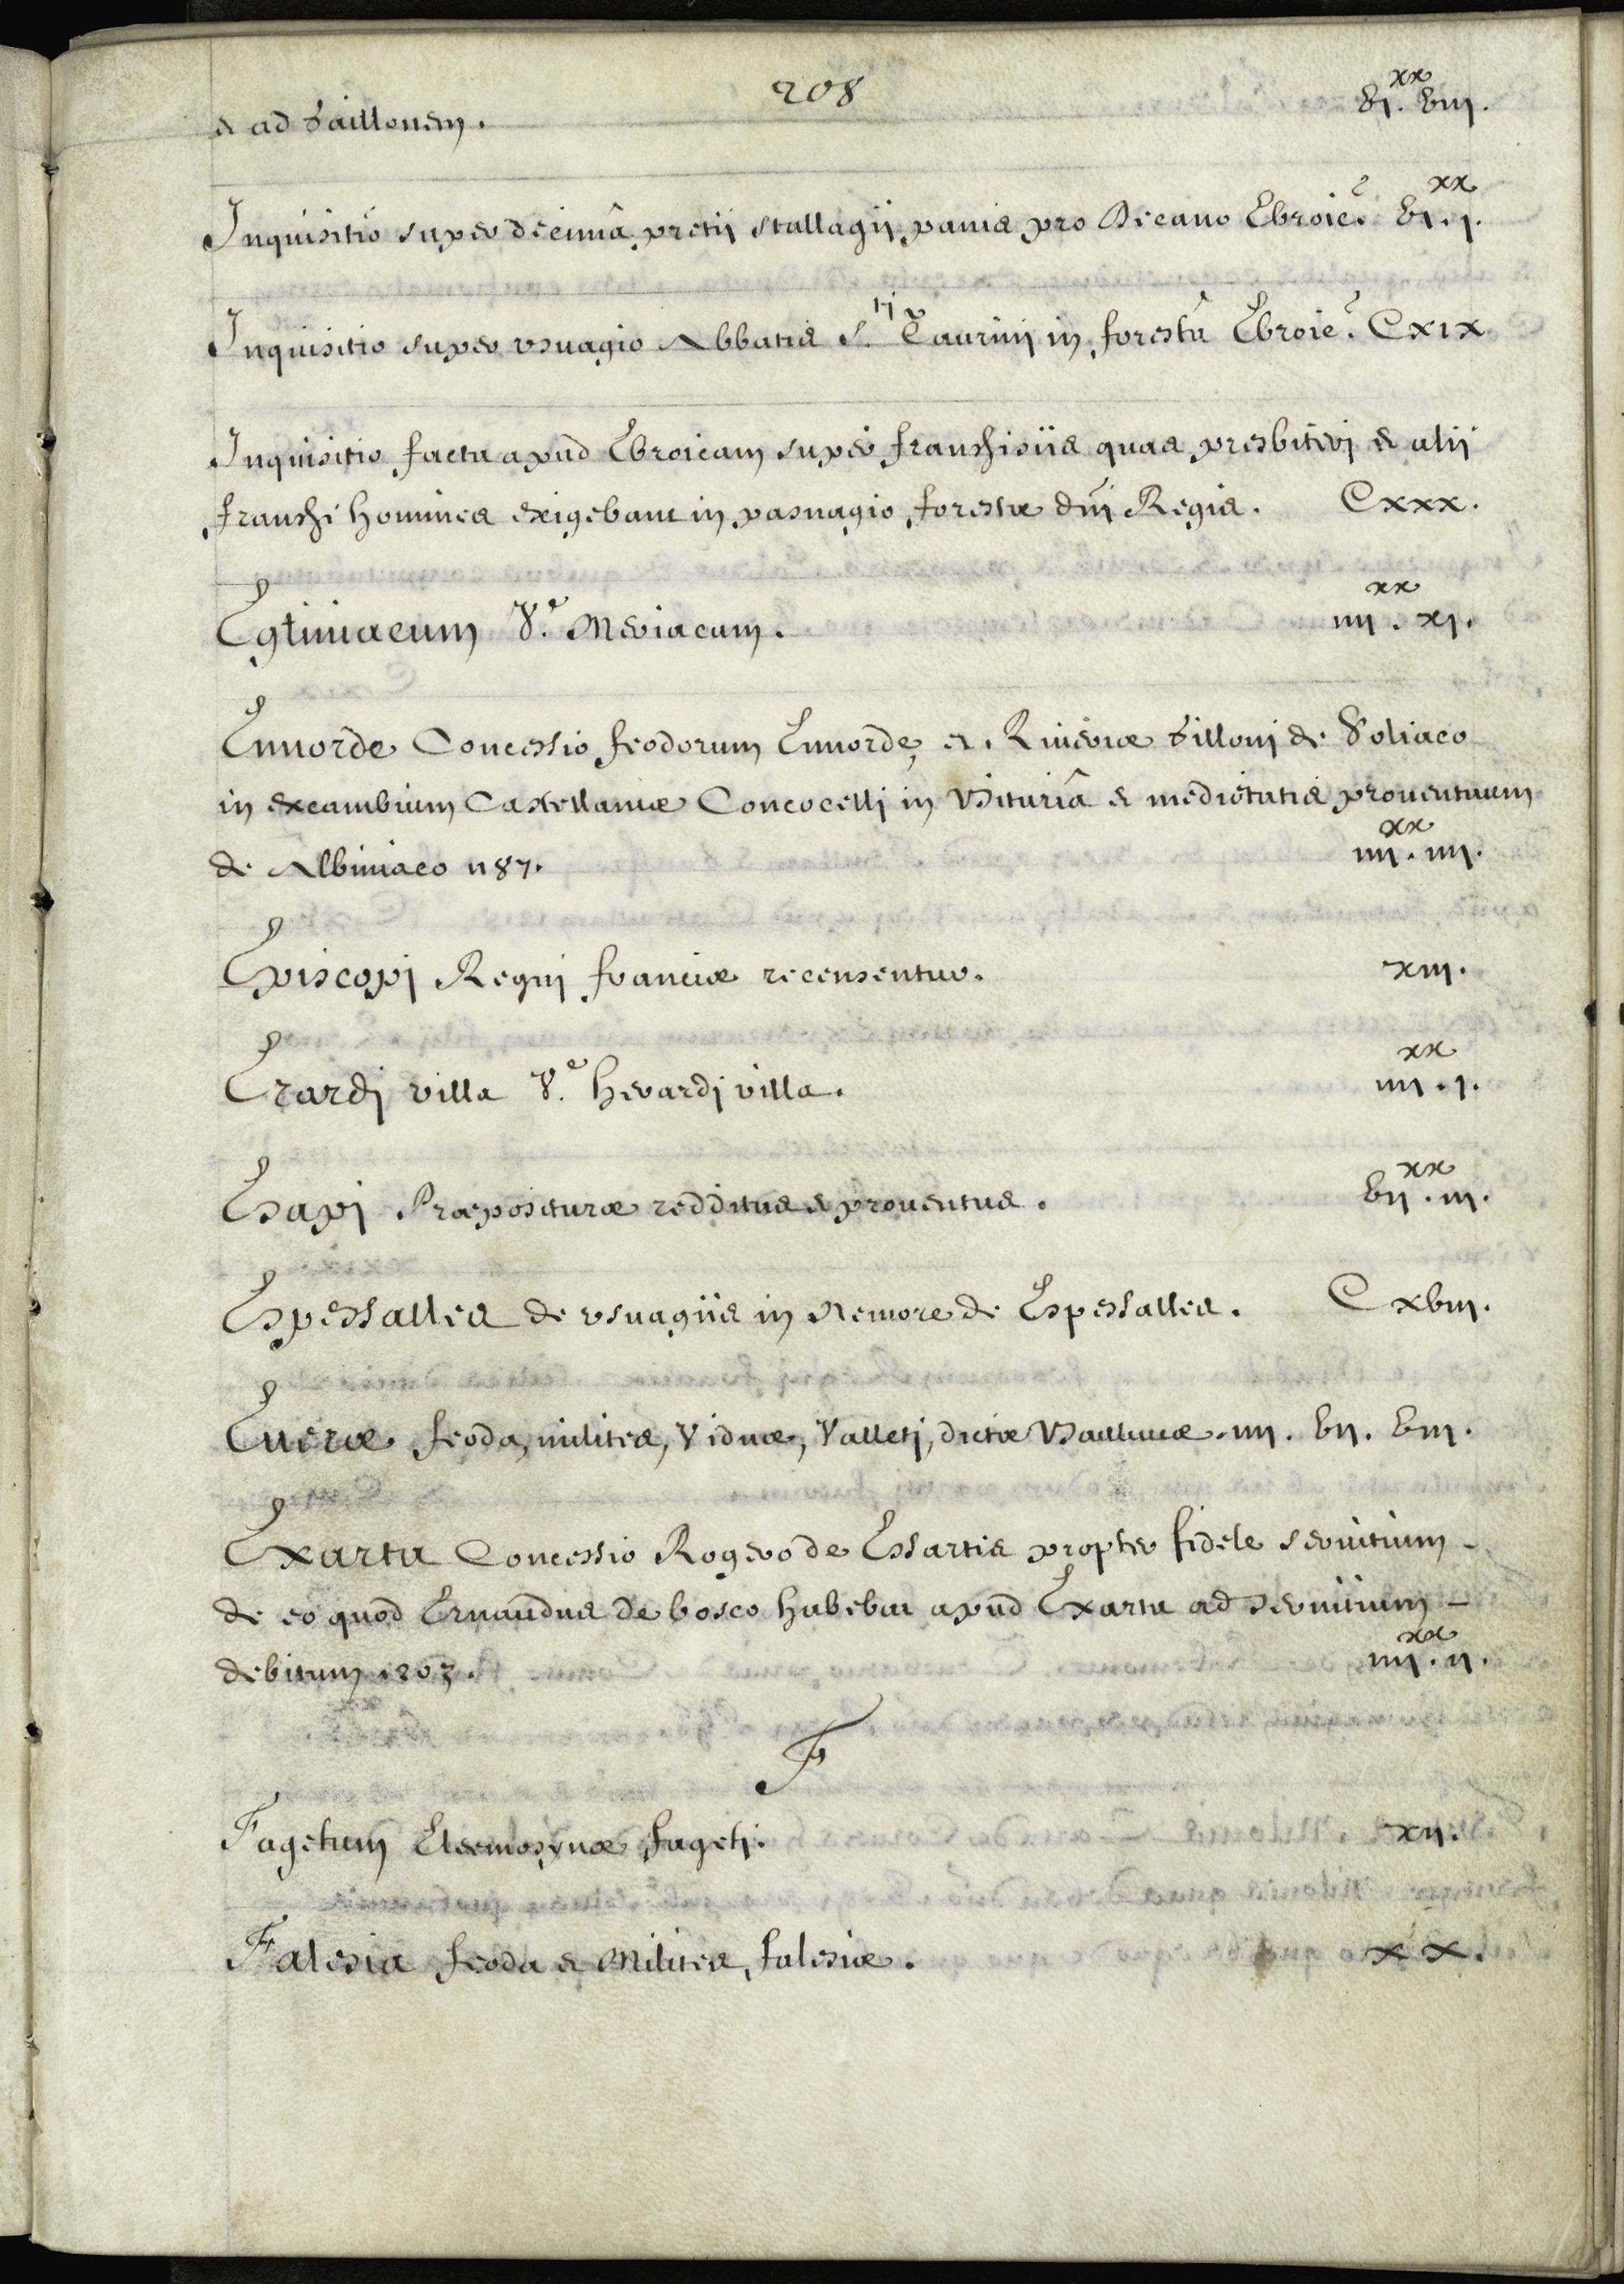 208
& ad Gaillonem. vi.^xx viii.
Inquisitio super decimâ pretii stallagii panis pro Decano Ebroic. vi.^xx i.
Inquisitio super usuagio Abbatis S.^ti Taurini in forestâ Ebroic. Cxix
Inquisitio facta apud Ebroicam super franchisiis quas presbiteri & alii
franchi homines exigebant in pasnagio forestæ dñi Regis. Cxxx.
V.^e Meviacum. iiii.^xx xi.
Ennorde Concessio feodorum Ennorde, et Riueriæ Gilloni de Soliaco
in excambium Castellaniæ Concocelli in Bituriâ & medietatis prouentuum
de Albiniaco 1187. iiii.^xx iiii.
Episcopi Regni franciæ recensentur. xiii.
Erardi villa V.^e herardi villa. iiii.^xx i.
Esapi Præpositurae redditus & prouentus. vii.^xx iii.
Espessalles de usuagiis in Nemore de Espessalles. Cxviii.
feoda, milites, Viduæ, Valleti, dictæ Bailliuiæ. iiii. vii. viii.
Exarta Concessio Rogero de Essartis propter fidele seruitium
de eo quod Ernaudus de bosco habebat apud Exarta ad seruitium
debitum 1203. iiii.^xx ii.
F
Fagetum Eleemosynæ fageti. xii.
Falesia feoda & Milites falesiæ. xx.